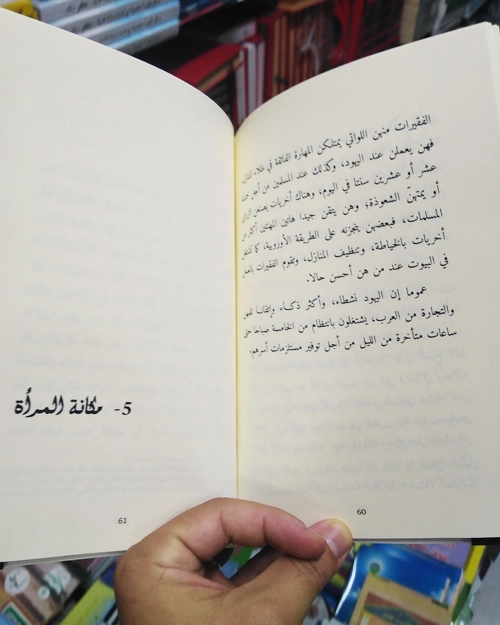 الفقيرات منهن اللواتي يمتلكن المهارة الفائقة في طلاء
فهن يعملن عند اليهود، وكذلك عند المسلمين من أجل
عشر أو عشرين سنتا في اليوم، وهناك أخريات يصنعن
أو يمتهنّ الشعوذة؛ وهن يتقن جيدا هاتين المهنتين أكثر من
المسلمات، فبعضهن ينجزنه على الطريقة الأوروبية، كما تشتغل
أخريات بالخياطة، وتنظيف المنازل، وتقوم الفقيرات
في البيوت عند من هن أحسن حالا.
عموما إن اليهود نشطاء، وأكثر ذكاء، وإتقانا
والتجارة من العرب، يشتغلون بانتظام من الخامسة صباحا حتى
ساعات متأخرة من الليل من أجل توفير مستلزمات أسرهم.
60
5- مكانة المرأة
61